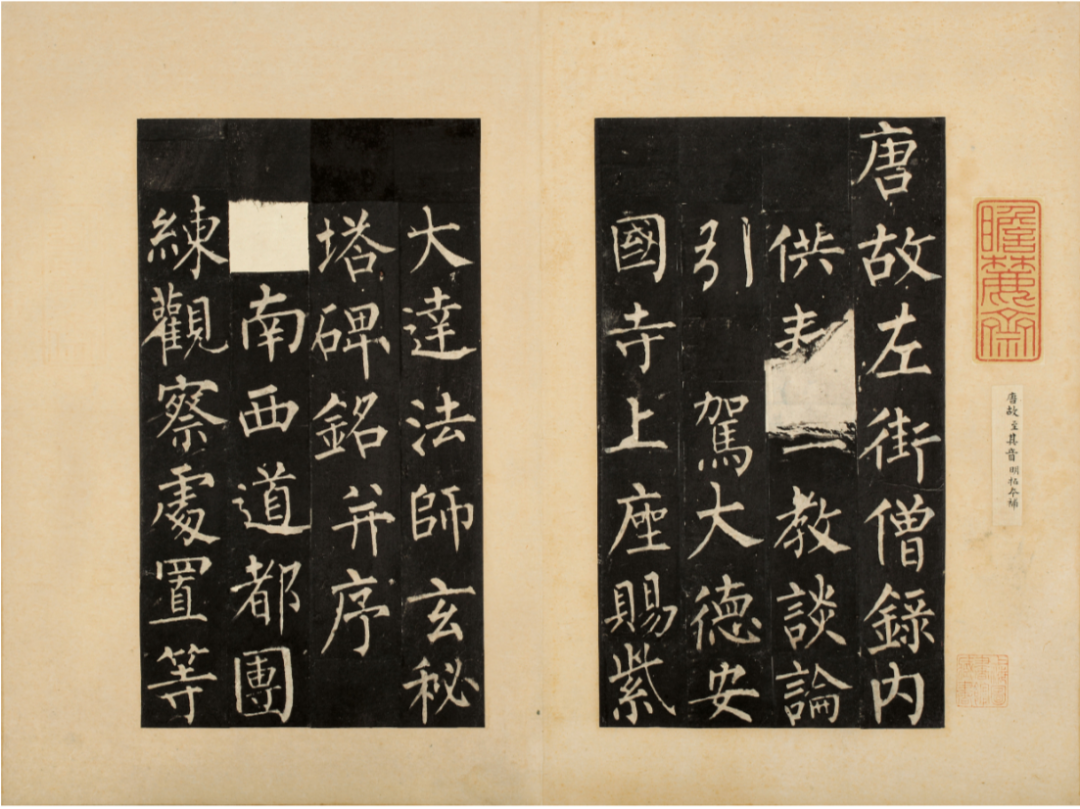 瞻麓齋
唐故至其音明拓本補
唐故左街僧錄內
供 教談論
引駕大德安
國寺上座賜紫
大達法師玄秘
塔碑銘并序
南西道都團
練觀察處置等